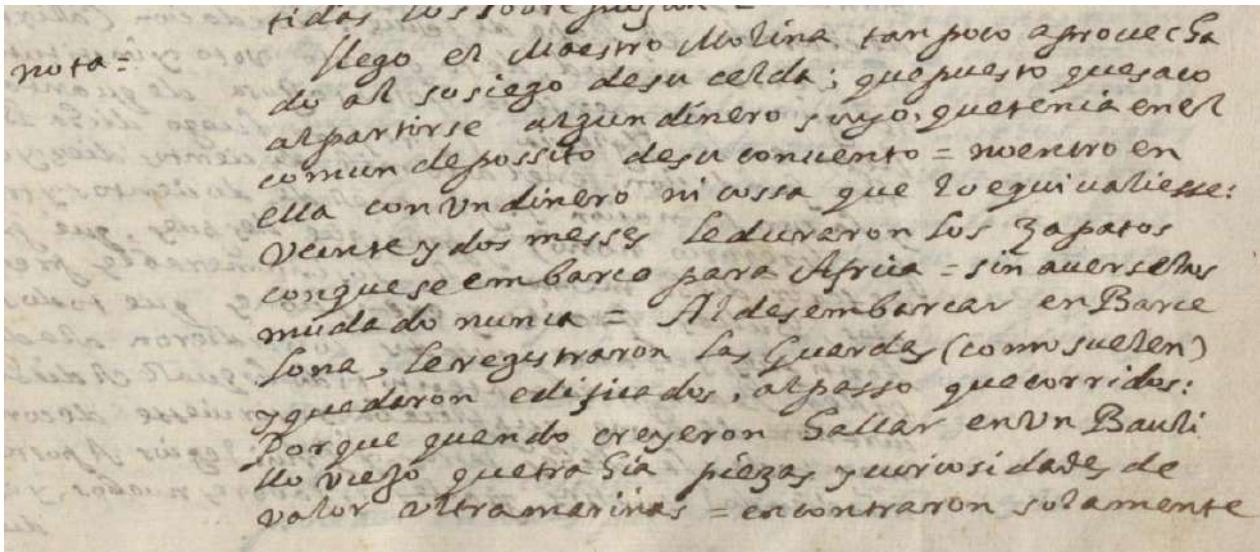 tidas los sobrepujan =
nota =
llego el Maestro Molina tan poco aprouecha
do al sosiego de su celda; que puesto que saco
al partirse algun dinero suyo, que tenia en el
comun depossito de su conuento = no entro en
ella con vn dinero ni cossa que lo equivaliesse:
Veinte y dos messes le duraron los zapatos
con que se embarco para Africa = sin auerselos
mudado nunca = Al desembarcar en Barce
lona, le registraron las Guardas (como suelen)
y quedaron edificados, al passo que corridos:
Porque quando creyeron hallar en vn Bauli
llo viejo que trahia piezas y curiosidades de
valor vltramarinas = encontraron solamente